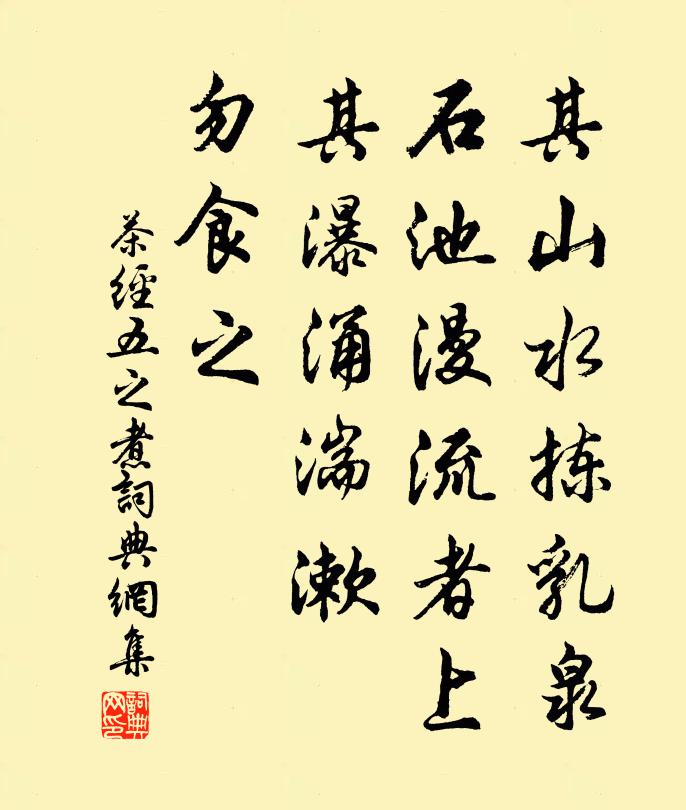 其山水揀乳泉
石池漫流者上
其瀑涌湍漱
勿食之
茶經五之煮詞典網集
詞典網印